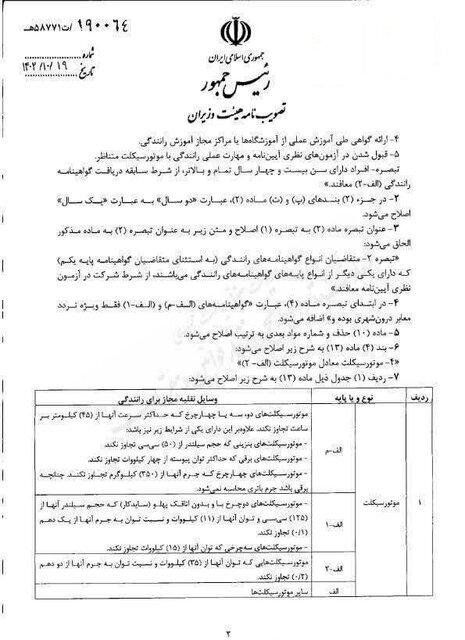 ۱۹۰۰۶۴/ت۵۸۷۷۱هـ
شماره
۱۴۰۲/۱۰/۱۹
تاریخ
جمهوری اسلامی ایران
رئیس جمهور
تصویب نامه هیئت وزیران
۴- ارائه گواهی طی آموزش عملی از آموزشگاه‌ها یا مراکز مجاز آموزش رانندگی.
۵- قبول شدن در آزمون‌های نظری آیین‌نامه و مهارت عملی رانندگی با موتورسیکلت متناظر.
تبصره- افراد دارای سن بیست و چهار سال تمام و بالاتر، از شرط سابقه دریافت گواهینامه
رانندگی (الف-۲) معافند.»
۲- در جزء (۲) بندهای (پ) و (ت) ماده (۲)، عبارت «دو سال» به عبارت «یک سال»
اصلاح می‌شود.
۳- عنوان تبصره ماده (۲) به تبصره (۱) اصلاح و متن زیر به عنوان تبصره (۲) به ماده مذکور
الحاق می‌شود:
«تبصره ۲- متقاضیان انواع گواهینامه‌های رانندگی (به استثنای متقاضیان گواهینامه پایه یکم)
که دارای یکی دیگر از انواع پایه‌های گواهینامه‌های رانندگی می‌باشند، از شرط شرکت در آزمون
نظری آیین‌نامه معافند.»
۴- در ابتدای تبصره ماده (۴)، عبارت «گواهینامه‌های (الف-م) و (الف-۱) فقط ویژه تردد
معابر درون‌شهری بوده و» اضافه می‌شود.
۵- ماده (۱۰) حذف و شماره مواد بعدی به ترتیب اصلاح می‌شود.
۶- بند (۴) ماده (۱۳) به شرح زیر اصلاح می‌شود:
«۴- موتورسیکلت معادل موتورسیکلت (الف- ۲)»
۷- ردیف (۱) جدول ذیل ماده (۱۳) به شرح زیر اصلاح می‌شود:
ردیف نوع و یا پایه وسایل نقلیه مجاز برای رانندگی
۱ موتورسیکلت
الف-م
موتورسیکلت‌های دو، سه یا چهارچرخ که حداکثر سرعت آنها از (۴۵) کیلومتر بر
ساعت تجاوز نکند. علاوه‌بر این دارای یکی از شرایط زیر نیز باشد:
- موتورسیکلت‌های بنزینی که حجم سیلندر از (۵۰) سی‌سی تجاوز نکند.
- موتورسیکلت‌های برقی که حداکثر توان پیوسته از چهار کیلووات تجاوز نکند.
- موتورسیکلت‌های چهارچرخ که جرم آنها از (۳۵۰) کیلوگرم تجاوز نکند. چنانچه
برقی باشد جرم باتری محاسبه نمی‌شود.
الف-۱
- موتورسیکلت‌های دوچرخ با و بدون اتاقک پهلو (سایدکار) که حجم سیلندر آنها از
(۱۲۵) سی‌سی و توان آنها از (۱۱) کیلووات و نسبت توان به جرم آنها از یک دهم
(۰/۱) تجاوز نکند.
- موتورسیکلت‌های سه‌چرخی که توان آنها از (۱۵) کیلووات تجاوز نکند.
الف-۲
موتورسیکلت‌هایی که توان آنها از (۳۵) کیلووات و نسبت توان به جرم آنها از دو دهم
(۰/۲) تجاوز نکند.
الف سایر موتورسیکلت‌ها
۲